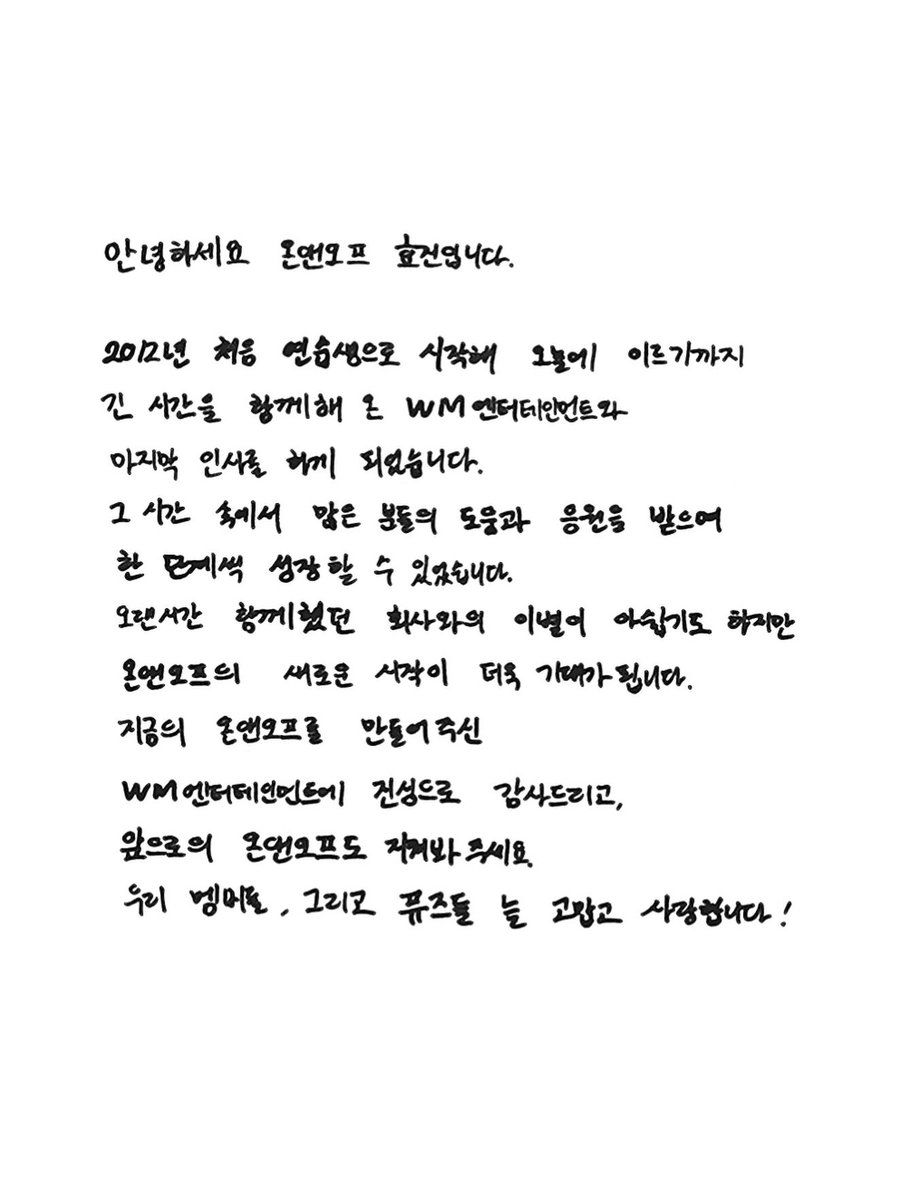 안녕하세요 온앤오프 효진입니다.
2012년 처음 연습생으로 시작해 오늘에 이르기까지
긴 시간을 함께해 온 WM엔터테인먼트와
마지막 인사를 하게 되었습니다.
그 시간 속에서 많은 분들의 도움과 응원을 받으며
한 단계씩 성장할 수 있었습니다.
오랜시간 함께했던 회사와의 이별이 아쉽기도 하지만
온앤오프의 새로운 시작이 더욱 기대가 됩니다.
지금의 온앤오프를 만들어주신
WM엔터테인먼트에 진심으로 감사드리고,
앞으로의 온앤오프도 지켜봐 주세요.
우리 멤버들, 그리고 퓨즈들 늘 고맙고 사랑합니다!